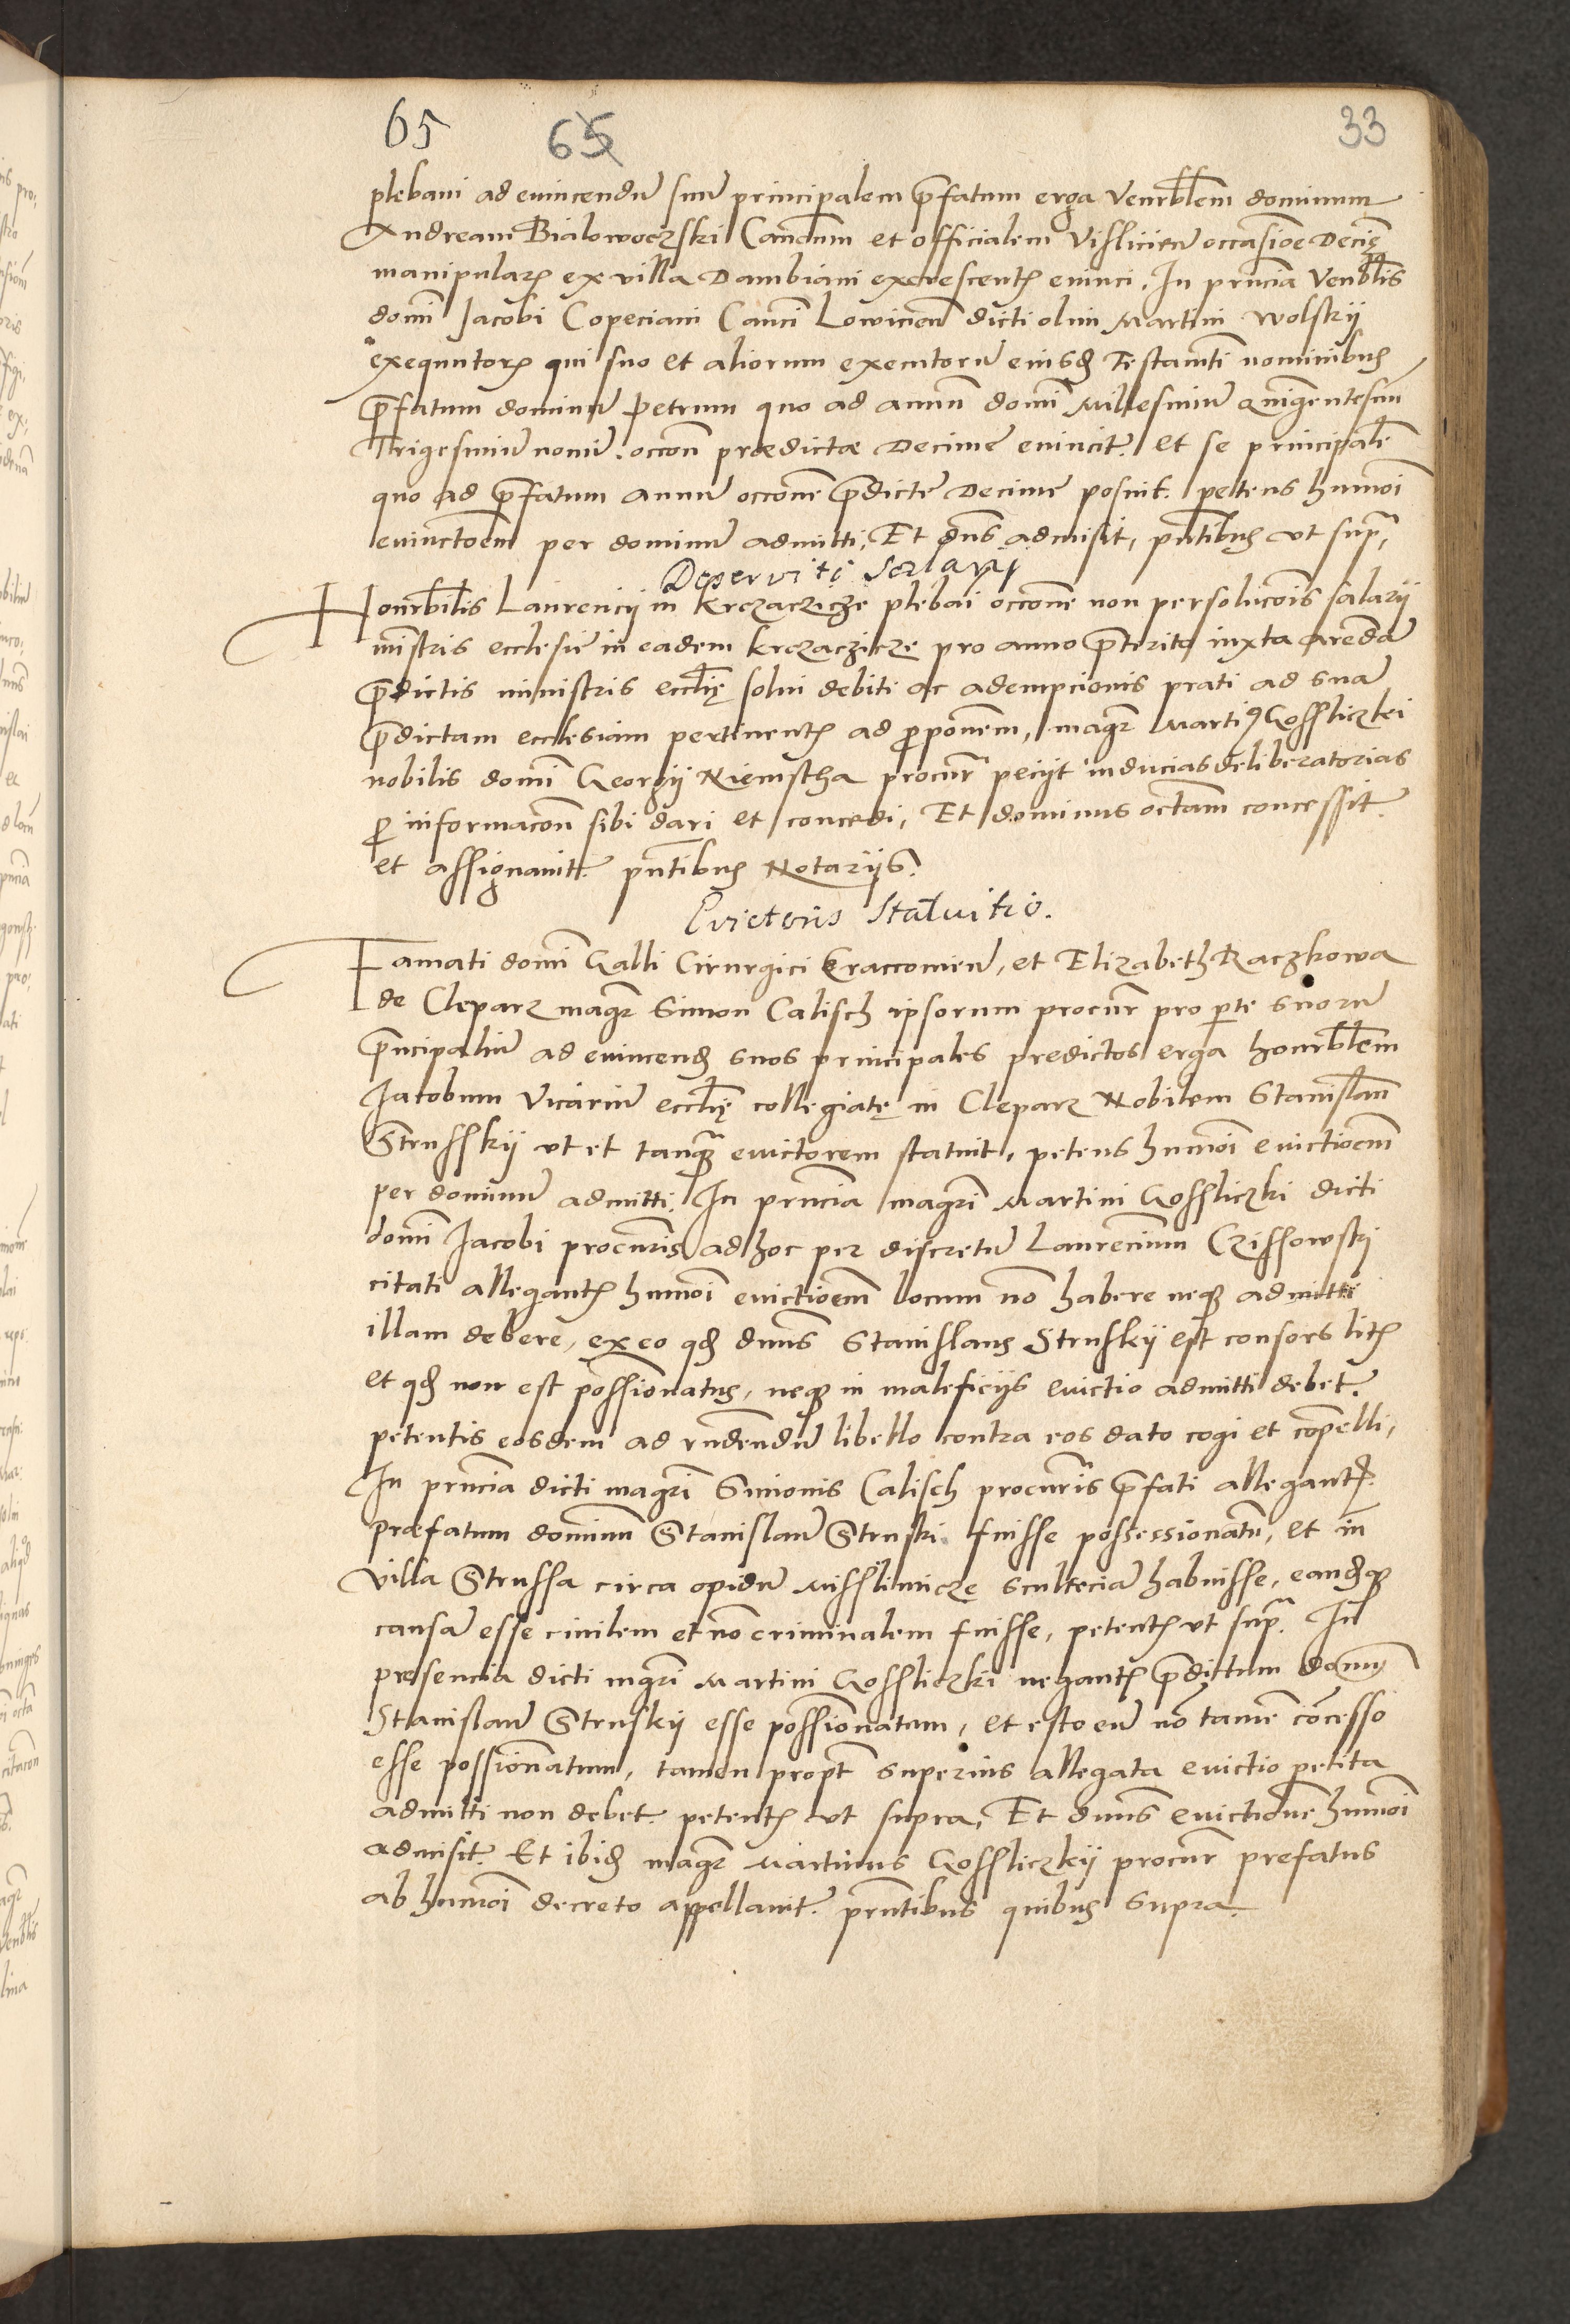 65 65 33
plebani ad euincendũ suũ principalem p̃fatum erga Venrblem dominum
Andream Bialowoczski Canoũm et officialem Visliciẽn occasioñe Decię
manipulari ex villa Dambiani excrescent̃ euinci, In prñcia Venblis
domi Jacobi Copeciani Canci Lowicieñ dicti olim Martini Wolskij
exequutor̃ qui suo et aliorum executorũ eiusd̃ Testamti nominibus
p̃fatum dominũ Petrum quo ad annũ domi Millesimũ Quingentesimũ
Trigesimũ nonũ occoñ praedictae Decime euincit. et se principalẽ
quo ad p̃fatum annũ occone p̃dicte Decime posuit. petens huiũoi
euinctoem per dominũ admitti, Et dñs admisit, pñtibus vt sup̃,
Deserviti salarij
Honrbilis Laurencij in Krczaczicze plebai occone non persolucõis salarij
mistris ecclesie in eadem Krczaczicze pro anno p̃terito iuxta arendã
p̃dictis ministris eccłię solui debiti ac adempcionis prati ad suã
p̃dictam ecclesiam pertinent̃ ad p̃ponem, magr̃ Marti9 Gossliczkei
nobilis domi Georgij Niemstha procur̃ pecijt inducias deliberatorias
p informacoñ sibi dari et concedi, Et dominus octam concessit
et assignauit. pñtibus Notarijs.
Evictoris Statuitio.
Famati domi Galli Cirurgici Craccouieñ, et Elizabeth Raczkowa
de Cleparz magr̃ Simon Calisch ipsorum procur̃ pro parte suorũ
p̃ncipaliũ ad euincend̃ suos principales predictos erga honrblem
Jacobum Vicariũ eccłię collegiatę in Cleparz Nobilem Stanislaũ
Strusskij vt et tanq̃ euictorem statuit, petens huiũoi euictioem
per dominũ admitti, In prñcia magri Martini Gossliczki dicti
domi Jacobi procuris ad hoc per discretũ Laurencium Czissowski
citati allegant̃ huiũoi euictioem locum nõ habere neq̃ admitti
illam debere, ex eo qd̃ dnũs Stanislaus Struskij est consors lit̃
et qd̃ non est possionatus, neq̃ in maleficijs euictio admitti debet.
petentis eosdem ad rñdendũ libello contra eos dato cogi et cõpelli,
In prñcia dicti magri Simonis Calisch procuris p̃fati allegant̃
Praefatum dominũ Stanislaũ Struski fuisse possessionatũ, et in
villa Strussa circa opidũ Misslimicze sculteciã habuisse, eandq̃
causã esse ciuilem et nõ criminalem fuisse, petent̃ vt sup̃. In
presencia dicti mgri Martini Gossliczki negant̃ p̃dictum domũ
Stanislaũ Struskij esse possionatum, et esto eũ nõ tame cõcesso
esse possionatum, tamen propt̃ superius allegata euictio petita
admitti non debet. petent̃ vt supra, Et dnũs euictione huiũoi
admisit. Et ibid̃ magr̃ Martinus Gossliczkij procur̃ prefatus
ab huiũoi decreto appellauit. prñtibus quibus supra.